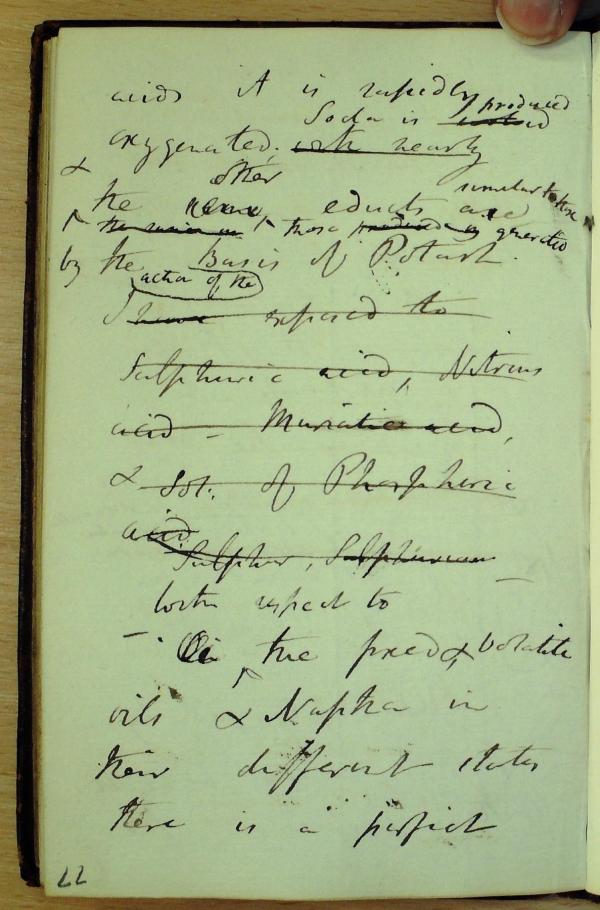 acids it is rapidly
Soda is produced
oxygenated. with nearly
& other similar to those
the educts are
those produced by generated
by the Basis of Potash.
action of the
I have exposed to
Sulphuric acid, Nitrous
acid - Muriatic acid,
& sol: of Phosphoric
acid
Sulphur, Sulphurous
With respect to
the fixed & volatile
oils & Naptha in
their different states
there is a perfect
22